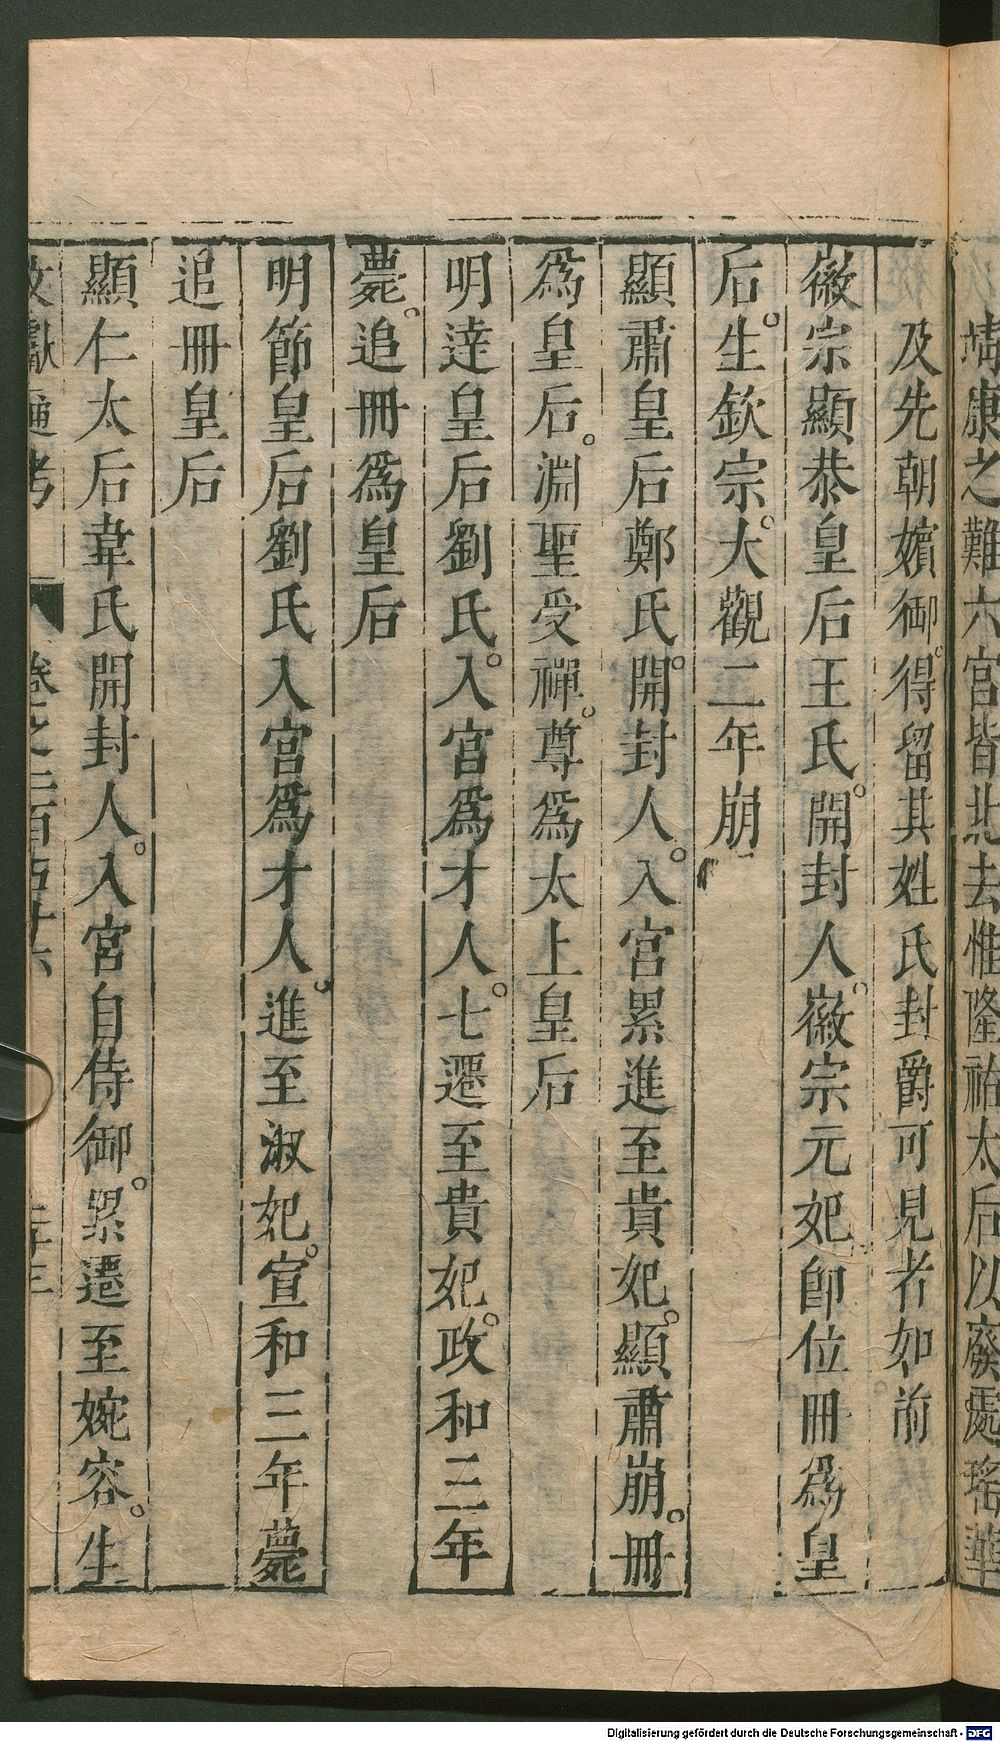 靖康之難六宮皆北去惟隆祐太后以廢處瑤華
及先朝嬪御。得留其姓氏封爵可見者如前
徽宗顯恭皇后王氏。開封人。徽宗元妃即位冊爲皇
后。生欽宗。大觀二年崩
顯肅皇后鄭氏。開封人。入宮累進至貴妃。顯肅崩。冊
爲皇后。淵聖受禪。尊爲太上皇后
明達皇后劉氏。入宮爲才人。七遷至貴妃。政和三年
薨。追冊爲皇后
明節皇后劉氏入宮爲才人。進至淑妃。宣和三年薨
追冊皇后
顯仁太后韋氏開封人。入宮自侍御。累遷至婉容。生
文獻通考 卷之二百五十六
Digitalisierung gefördert durch die Deutsche Forschungsgemeinschaft - DFG